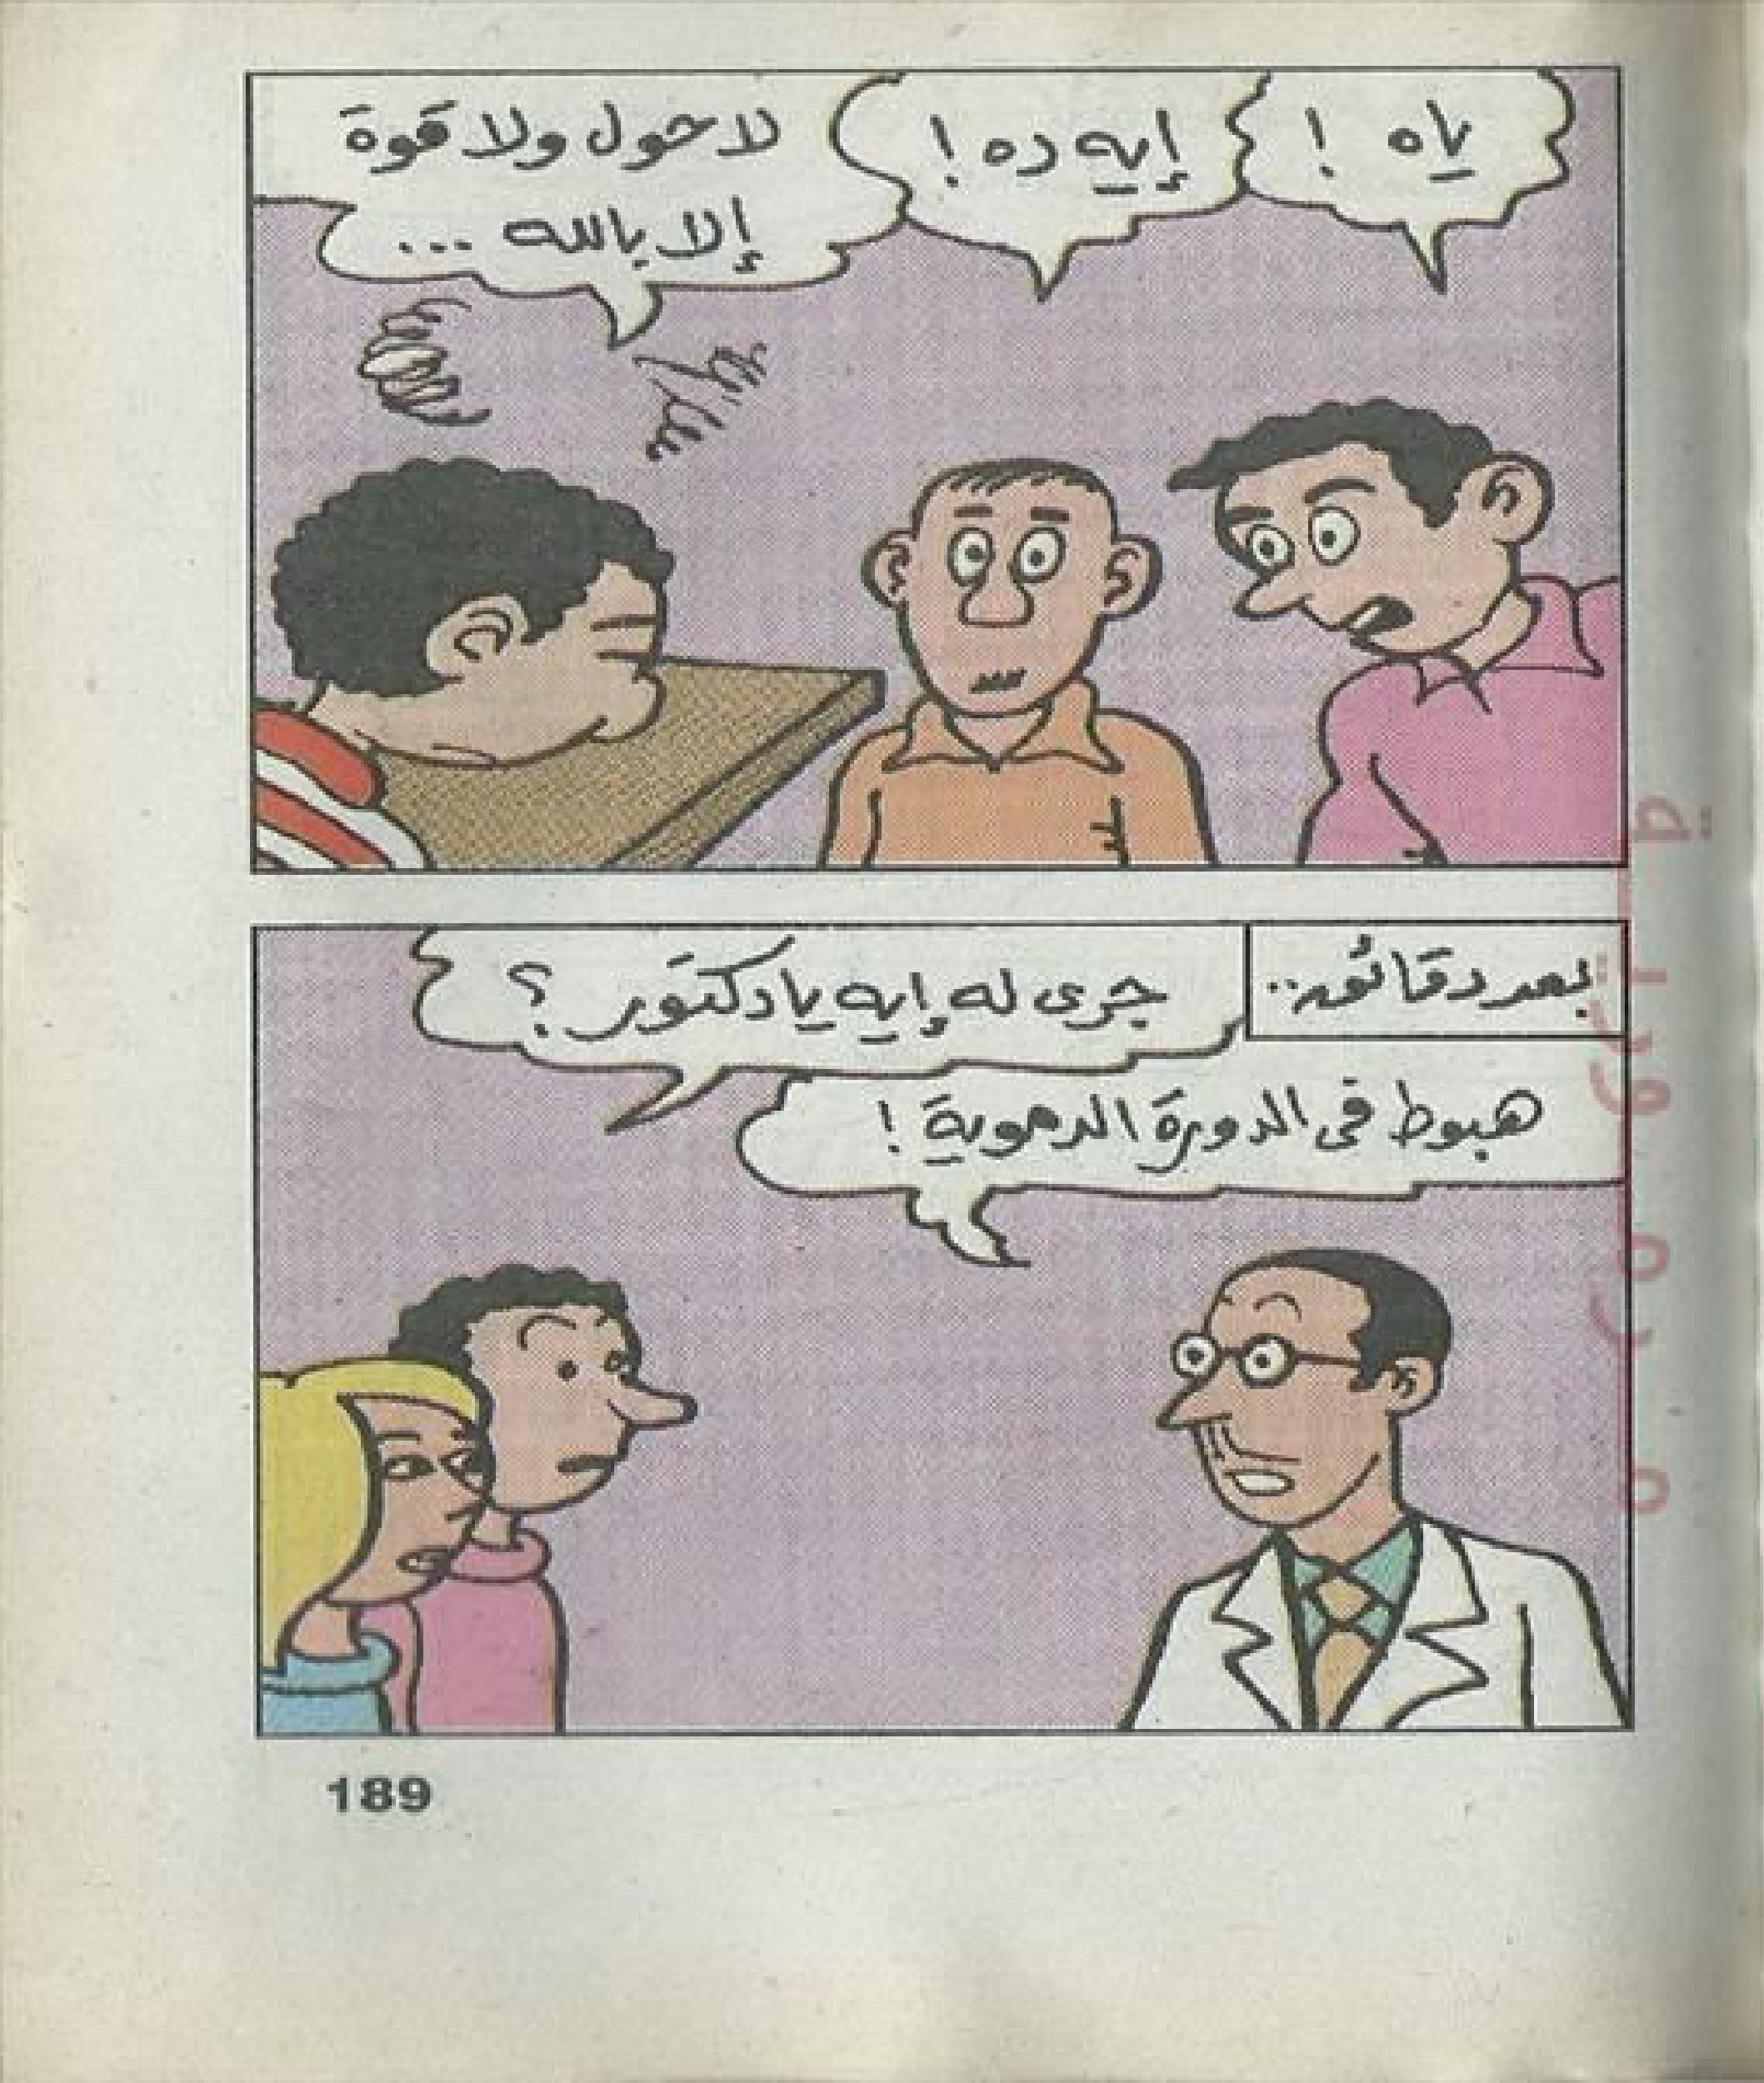 ياه !
إيه ده !
لا حول ولا قوة
إلا بالله ...
بعد دقائق..
جرى له إيه يا دكتور ؟
هبوط فى الدورة الدموية !
189